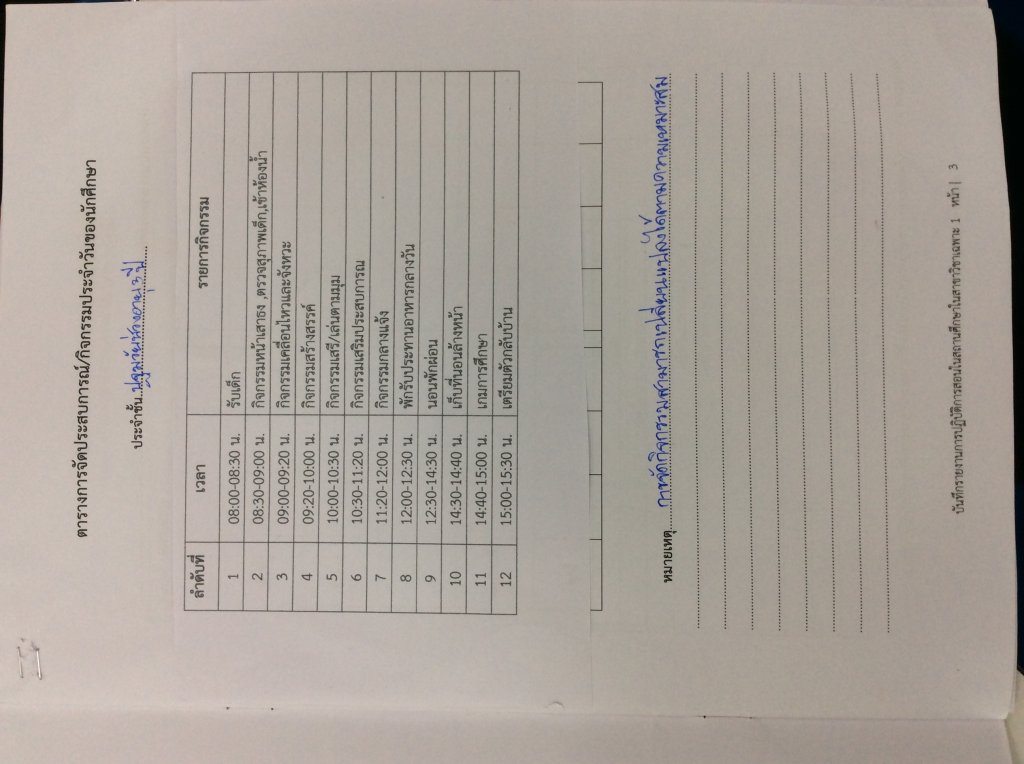 ตารางการจัดประสบการณ์/กิจกรรมประจำวันของนักศึกษา
ประจำชั้น..ปฐมวัยช่วงอายุ 3 ปี
ลำดับที่ เวลา รายการกิจกรรม
1 08:00-08:30 น. รับเด็ก
2 08:30-09:00 น. กิจกรรมหน้าเสาธง ,ตรวจสุภาพเด็ก,เข้าห้องน้ำ
3 09:00-09:20 น. กิจกรรมเคลื่อนไหวและจังหวะ
4 09:20-10:00 น. กิจกรรมสร้างสรรค์
5 10:00-10:30 น. กิจกรรมเสรี/เล่นตามมุม
6 10:30-11:20 น. กิจกรรมเสริมประสบการณ
7 11:20-12:00 น. กิจกรรมกลางแจ้ง
8 12:00-12:30 น. พักรับประทานอาหารกลางวัน
9 12:30-14:30 น. นอนพักผ่อน
10 14:30-14:40 น. เก็บที่นอนล้างหน้า
11 14:40-15:00 น. เกมการศึกษา
12 15:00-15:30 น. เตรียมตัวกลับบ้าน
หมายเหตุ.....การจัดกิจกรรมสามารถเปลี่ยนแปลงได้ตามความเหมาะสม
บันทึกรายงานการปฏิบัติการสอนในสถานศึกษาในสาขาวิชาเฉพาะ 1 หน้า | 3